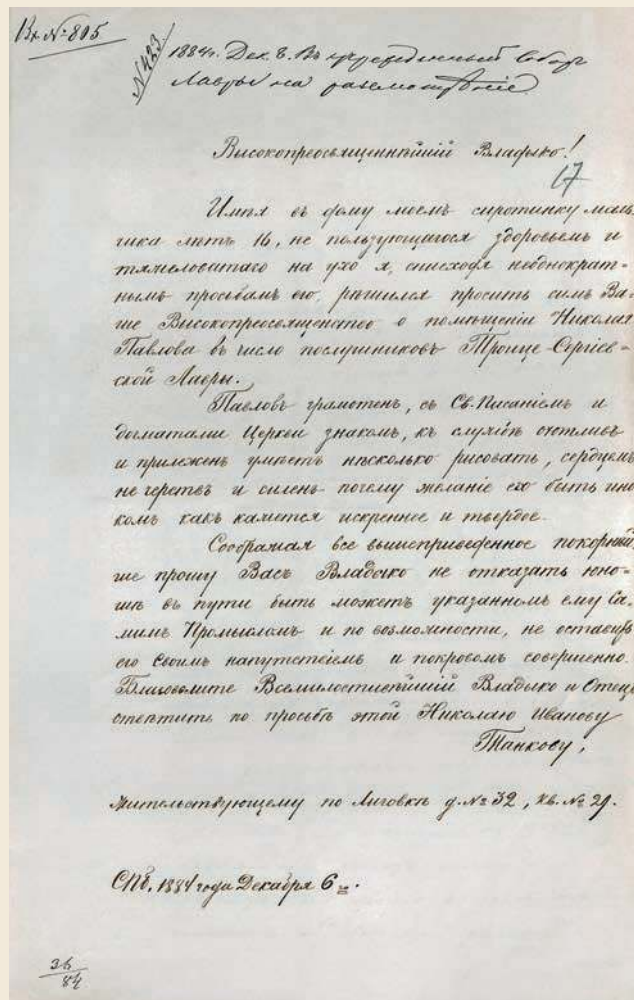 Вх. № 805
№ 423
1884 г. Дек. 8. Въ учрежденный Соборъ
Лавры на разсмотрѣніе
Высокопреосвященнѣйшій Владыко!
17
Имѣя въ дому моемъ сиротинку маль-
чика лѣтъ 16, не пользующагося здоровьемъ и
тяжеловатаго на ухо я, снисходя неоднократ-
нымъ просьбамъ его, рѣшился просить симъ Ва-
ше Высокопреосвященство о помѣщеніи Николая
Павлова въ число послушниковъ Троице-Сергіев-
ской Лавры.
Павловъ грамотенъ, съ Св. Писаніемъ и
догматами Церкви знакомъ, къ службѣ
и прилеженъ умѣетъ нѣсколько рисовать, сердцемъ
не черствъ и почему желаніе его быть ино
комъ какъ кажется искреннее и твердое.
Соображая все вышеприведенное покорнѣй
ше прошу Васъ Владыко не отказать юно-
шѣ въ пути быть можетъ указанномъ ему Са-
мимъ Промысломъ и по возможности, не оставить
его Своимъ напутствіемъ и покровомъ совершенно.
Благоволите Всемилостивѣйшій Владыко и Отецъ
отвѣтить по просьбѣ этой Николаю Иванову
Танкову,
жительствующему по Лиговкѣ д. № 32, кв. № 29.
СПб. 1884 года Декабря 6
36
84